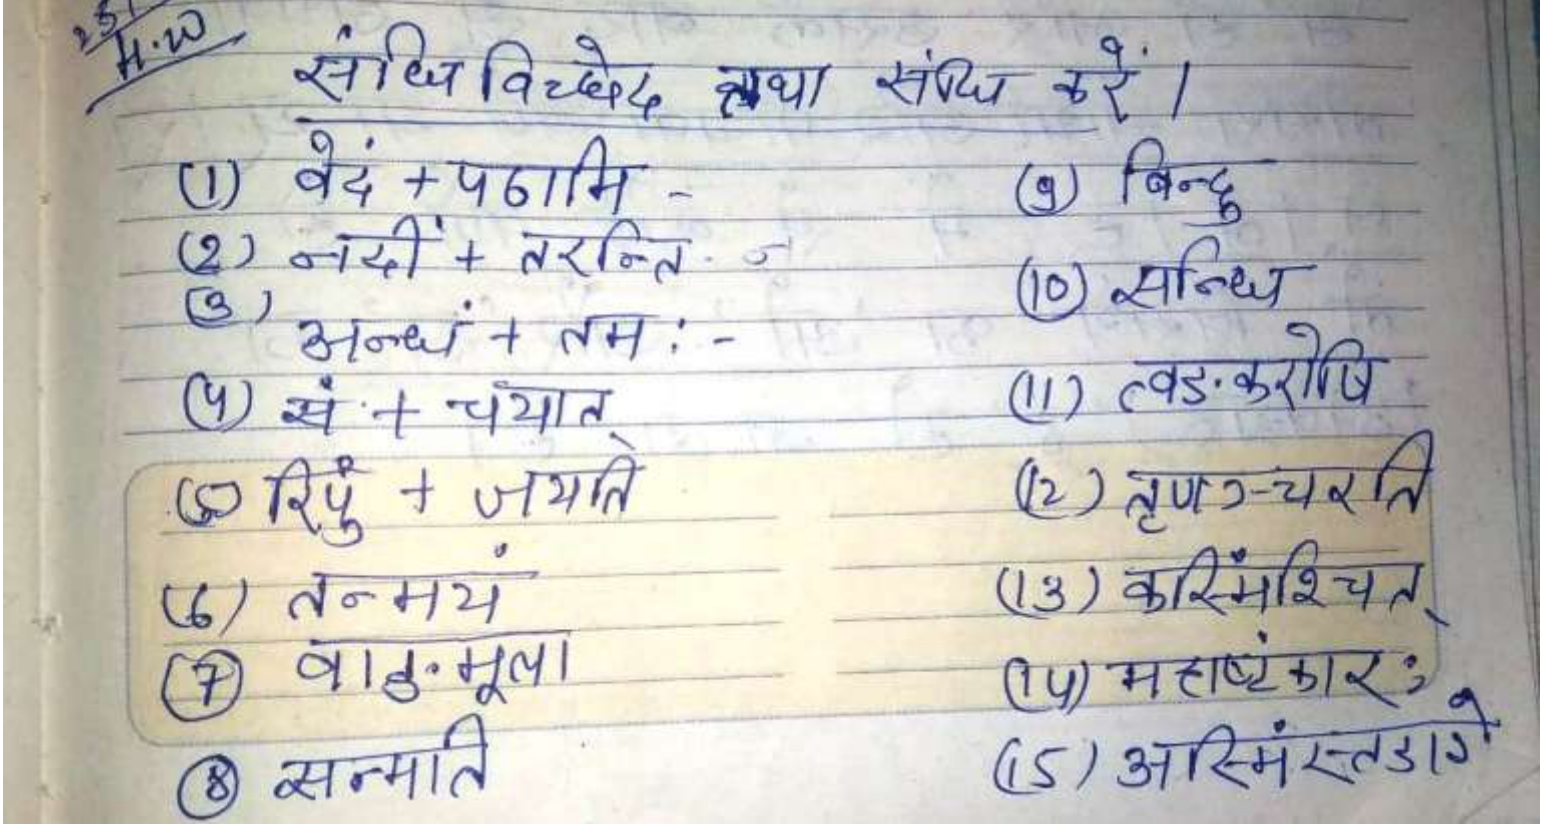 H.W
संधि विच्छेद तथा संधि करें।
(1) वेदं + पठामि -
(2) नदीं + तरन्ति -
(3) अन्धं + तमः -
(4) सं + चयात्
(5) रिपुं + जयति
(6) तन्मयं
(7) वाङ्मूला
(8) सन्मति
(9) बिन्दु
(10) सन्धि
(11) त्वङ्करोषि
(12) तृणञ्चरति
(13) कस्मिंश्चित्
(14) महाष्टंकारः
(15) अस्मिंस्तडागे